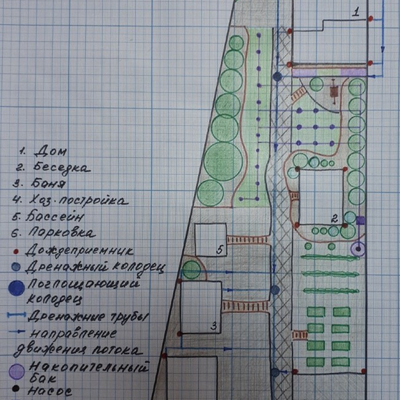 1
1. Дом
2. Беседка
3. Баня
4. Хоз. постройка
5. Бассейн
6. Парковка
Дождеприемник
Дренажный колодец
Поглощающий
колодец
Дренажные трубы
направление
движения потока
Накопительный
бак
насос
2
5
3